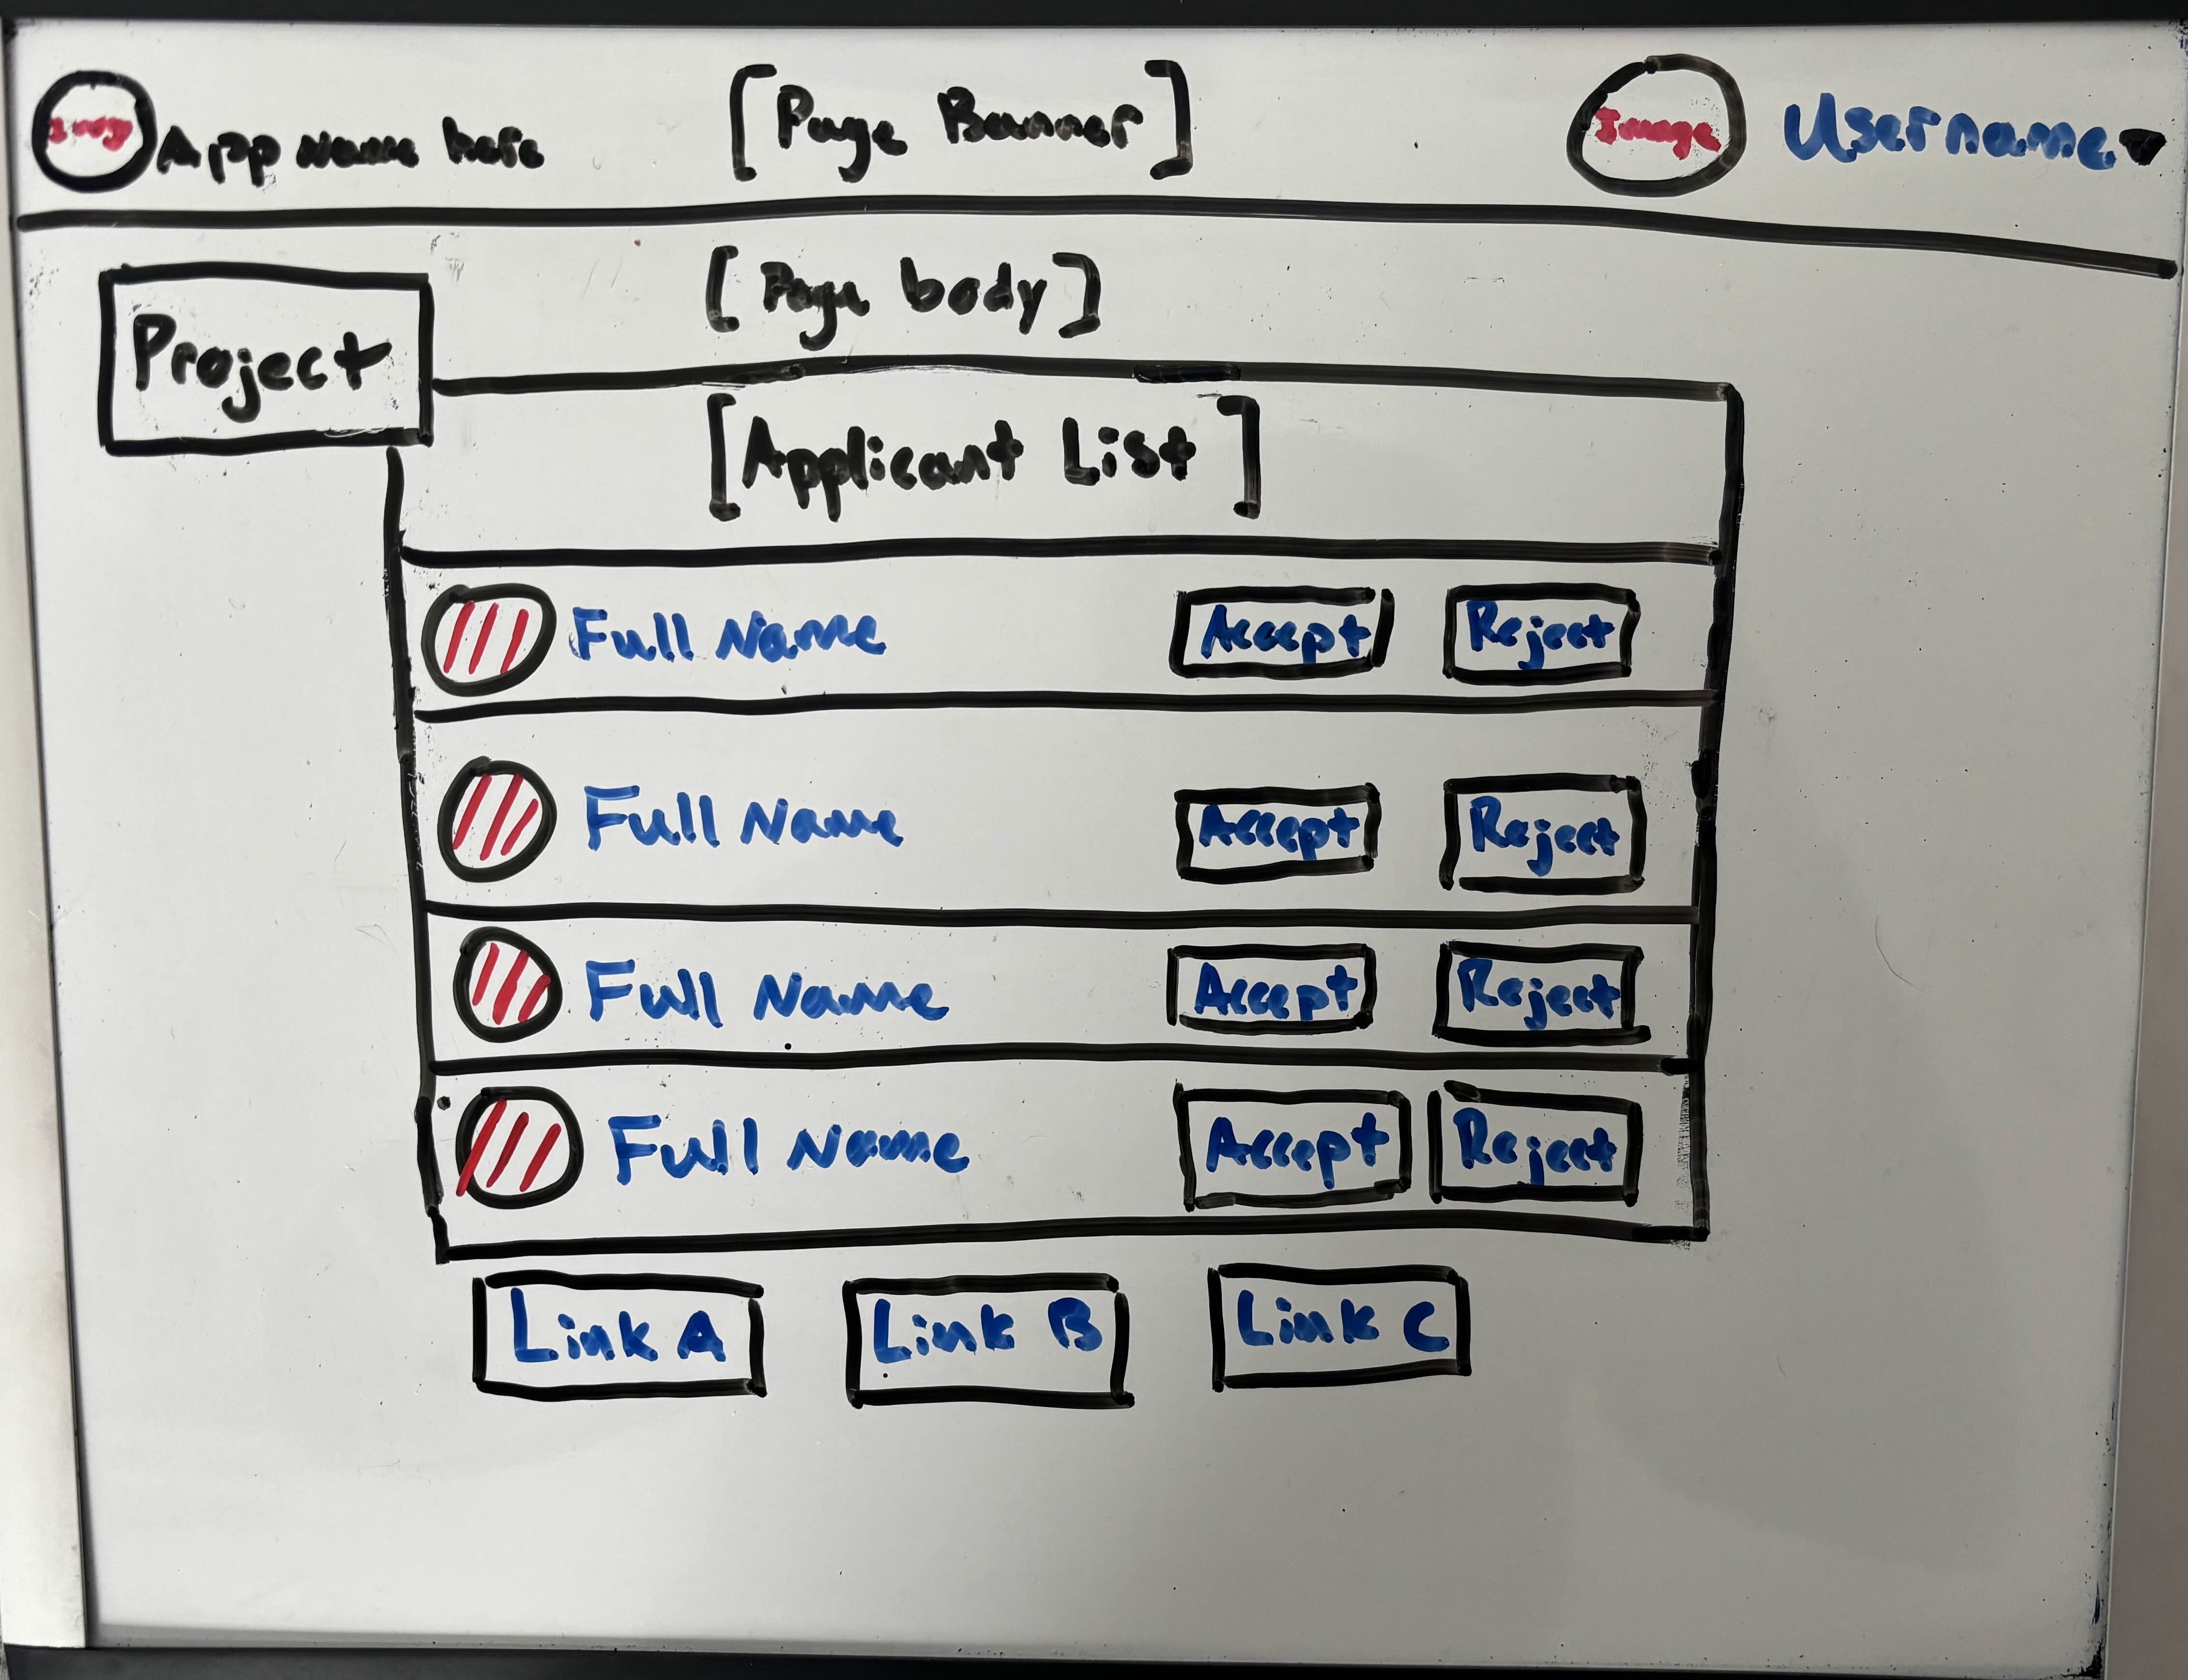 Image App Name here [Page Banner] Image Username
[Page body]
Project
[Applicant List]
Full Name Accept Reject
Full Name Accept Reject
Full Name Accept Reject
Full Name Accept Reject
Link A Link B Link C